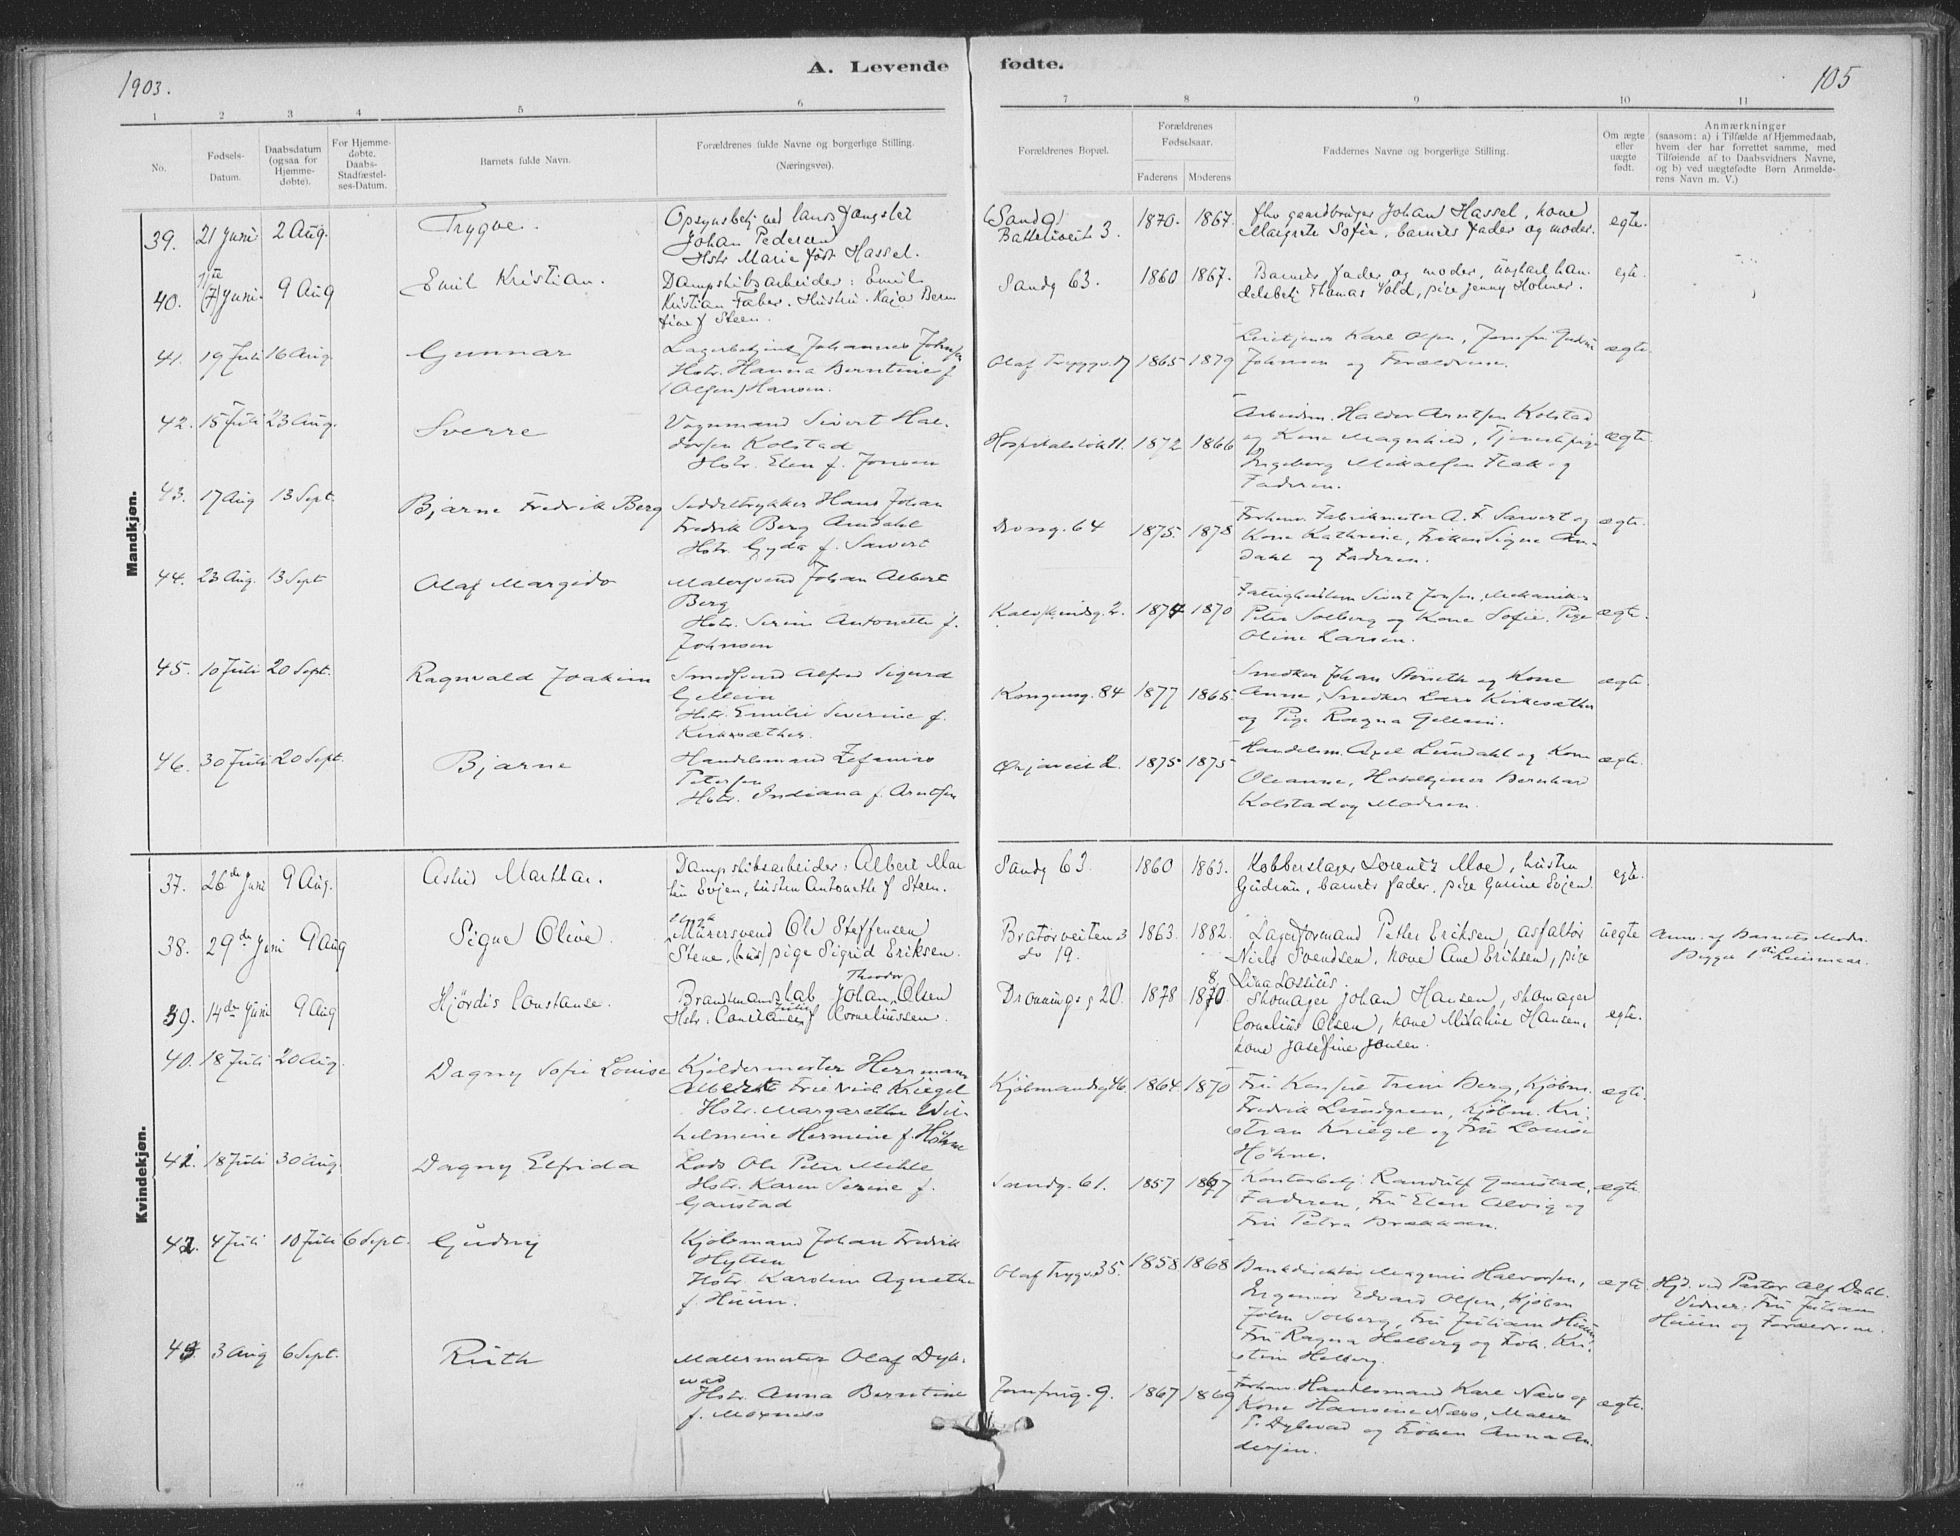 1903.
A. Levende fødte.
105
1 2 3 4 5 6 7 8 9 10 11
No.
Fødsels-Datum.
Daabsdatum (ogsaa for Hjemmedøbte).
For Hjemmedøbte. Daabs-Stadfæstelses-Datum.
Barnets fulde Navn.
Forældrenes fulde Navne og borgerlige Stilling. (Næringsvei).
Forældrenes Bopæl.
Forældrenes Fødselsaar.
Faderens Moderens
Faddernes Navne og borgerlige Stilling.
Om ægte eller uægte født.
Anmærkninger
(saasom: a) i Tilfælde af Hjemmedaab, hvem der har forrettet samme, med Tilføiende af to Daabsvidners Navne, og b) ved uægtefødte Børn Anmelderens Navn m. V.)
Mandkjøn.
39. 21 Juni 2 Aug. Trygve.
Opsynsbetj ved landsfængslet
Johan Pedersen
Hstr Marie født Hassel.
Sandg
Batteliveit 3. 1870. 1867.
fhv gaardbruger Johan Hassel, kone
Margrete Sofie, barnets fader og moder. egte.
40. 7 Juni. 9 Aug Emil Kristian.
Dampskibsarbeider: Emil
Kristian Faber. Hustru. Kaja Bern
tine f Steen.
Sandg 63. 1860 1867.
Barnets fader og moder, han
delsbetj Thomas Vold, pige Jenny Holmer. egte
41. 19 Juli 16 Aug. Gunnar
Lagerbetjent Johannes Johnsen
Hstr. Hanna Berntine f.
(Olsen) Hansen.
Olaf Trygv. 17 1865 1879
Karl Olsen, Jomfru
Johnsen og Forældrene. ægte
42. 15 Juli 23 Aug. Sverre
Vognmand Sivert Hal-
dorsen Kolstad
Hstr. Elen f. Jonsen
Hospitalsløk 11. 1872 1866
Arbeidsm. Haldor Arntsen Kolstad
og Kone Magnhild, Tjenestepige
Ingeborg Mikalsen og
Faderen. ægte
43. 17 Aug 13 Sept. Bjarne Fredrik Berg
Seddeltrykker Hans Johan
Fredrik Berg Amdahl
Hstr. Gyda f. Sawert
Drong. 64 1875. 1878
Forhenv. Fabrikmester A. F. Sawert og
Kone Kathrine, Frøken Signe Am-
dahl og Faderen. ægte
44. 23 Aug. 13 Sept Olaf Margido
Malersvend Johan Albert
Berg
Hstr. Serine Antonette f.
Johnsen
Kalvskindsg. 2. 1874 1870
Sivert Jonsen, Mekaniker
Peter Solberg og Kone Sofie. Pige
Oline Larsen. ægte.
45. 10 Juli 20 Sept. Ragnvald Joakim
Smedsvend Alfred Sigurd
Gellein
Hstr. Emilie Severine f.
Kirksæther.
Kongensg. 84 1877 1865.
Snedker Johan Størseth og Kone
Anna, Snedker Lars Kirkesæther
og Pige Ragna Gellein. ægte
46. 30 Juli 20 Sept. Bjarne
Handelsmand Zefanias
Petersen
Hstr. Indiana f. Arntsen
Ørjaveit 2. 1875 1875
Handelsm. Axel Lundahl og Kone
Oleanna, Hotelkjener Bernhard
Kolstad og Moderen. ægte
Kvindekjøn.
37. 26de Juni 9 Aug. Astrid Marthar.
Dampskibsarbeider: Albert Mar
tin Evjen, hustru Antonette f Steen.
Sandg 63. 1860 1863.
Kobberslager Lorentz Moe, hustru
Gudrun, barnets fader, pige Gurine Evjen egte.
38. 29de Juni 9 Aug Signe Olive.
Murersvend Ole Steffensen
Stene, (hus)pige Sigrid Eriksen.
Bratørveiten 3
do 19. 1863. 1882.
Lagerformand Petter Eriksen, asfaltør
Niels Svendsen, kone Ane Eriksen, pige
Lina Lossius. uegte
Anm. af Barnets Moder.
Begges 1ste Leiermaal.
39. 14de Juni 9 Aug Hjørdis Constanse.
Brandmandskab Johan Theodor Olsen
Hstr: Constance Julie f Corneliussen.
Dronningsg 20. 1878 1878
Skomager Johan Hansen, skomager
Cornelius Olsen, kone Mitaline Hansen,
kone Josefine Jensen. egte.
40. 18 Juli 20 Aug. Dagny Sofie Louise
Kjøldermester Herrmann
Albert Friedrich Kriegel
Hstr. Margarethe Wil-
helmine Hermine f. Höhne
Kjøbmandsg 46 1864 1870
Fru Berg, Kjøbm.
Fredrik Lundgreen, Kjøbm. Kri-
stian Kriegel og Fru Louise
Höhne. ægte.
41. 18 Juli 30 Aug. Dagny Elfrida
Lods Ole Peter Mehle
Hstr. Karen Serine f.
Ganstad
Sandg. 61. 1857 1867
Kontorbetj: Randulf Ganstad,
Faderen, Fru Elen Alvig og
Fru Petra Brækken. ægte
42. 4 Juli 10 Juli 6 Sept. Gudny
Kjøbmand Johan Fredrik
Hyllen
Hstr. Karoline Agnethe
f. Huun.
Olaf Trygv 35. 1858 1868
Bankdirektør Magnus Halvorsen,
Ingeniør Edvard Olsen, Kjøbm
John Solberg, Fru Juliane Huun,
Fru Ragna Helberg og Frøk. Kri-
stine Helberg. ægte.
Hjd. ved Pastor Alf Dahl.
Vidner: Fru Juliane
Huun og Forældrene.
43 3 Aug 6 Sept. Ruth
Malermester Olaf Dyb-
wad
Hstr. Anna Berntine
f. Moxness
Jomfrug. 9. 1867 1869
Forhenv. Handelsmand Karl Næss og
Kone Hansine Næss, Maler
P. Dybwad og Frøken Anna An-
dersen. ægte.